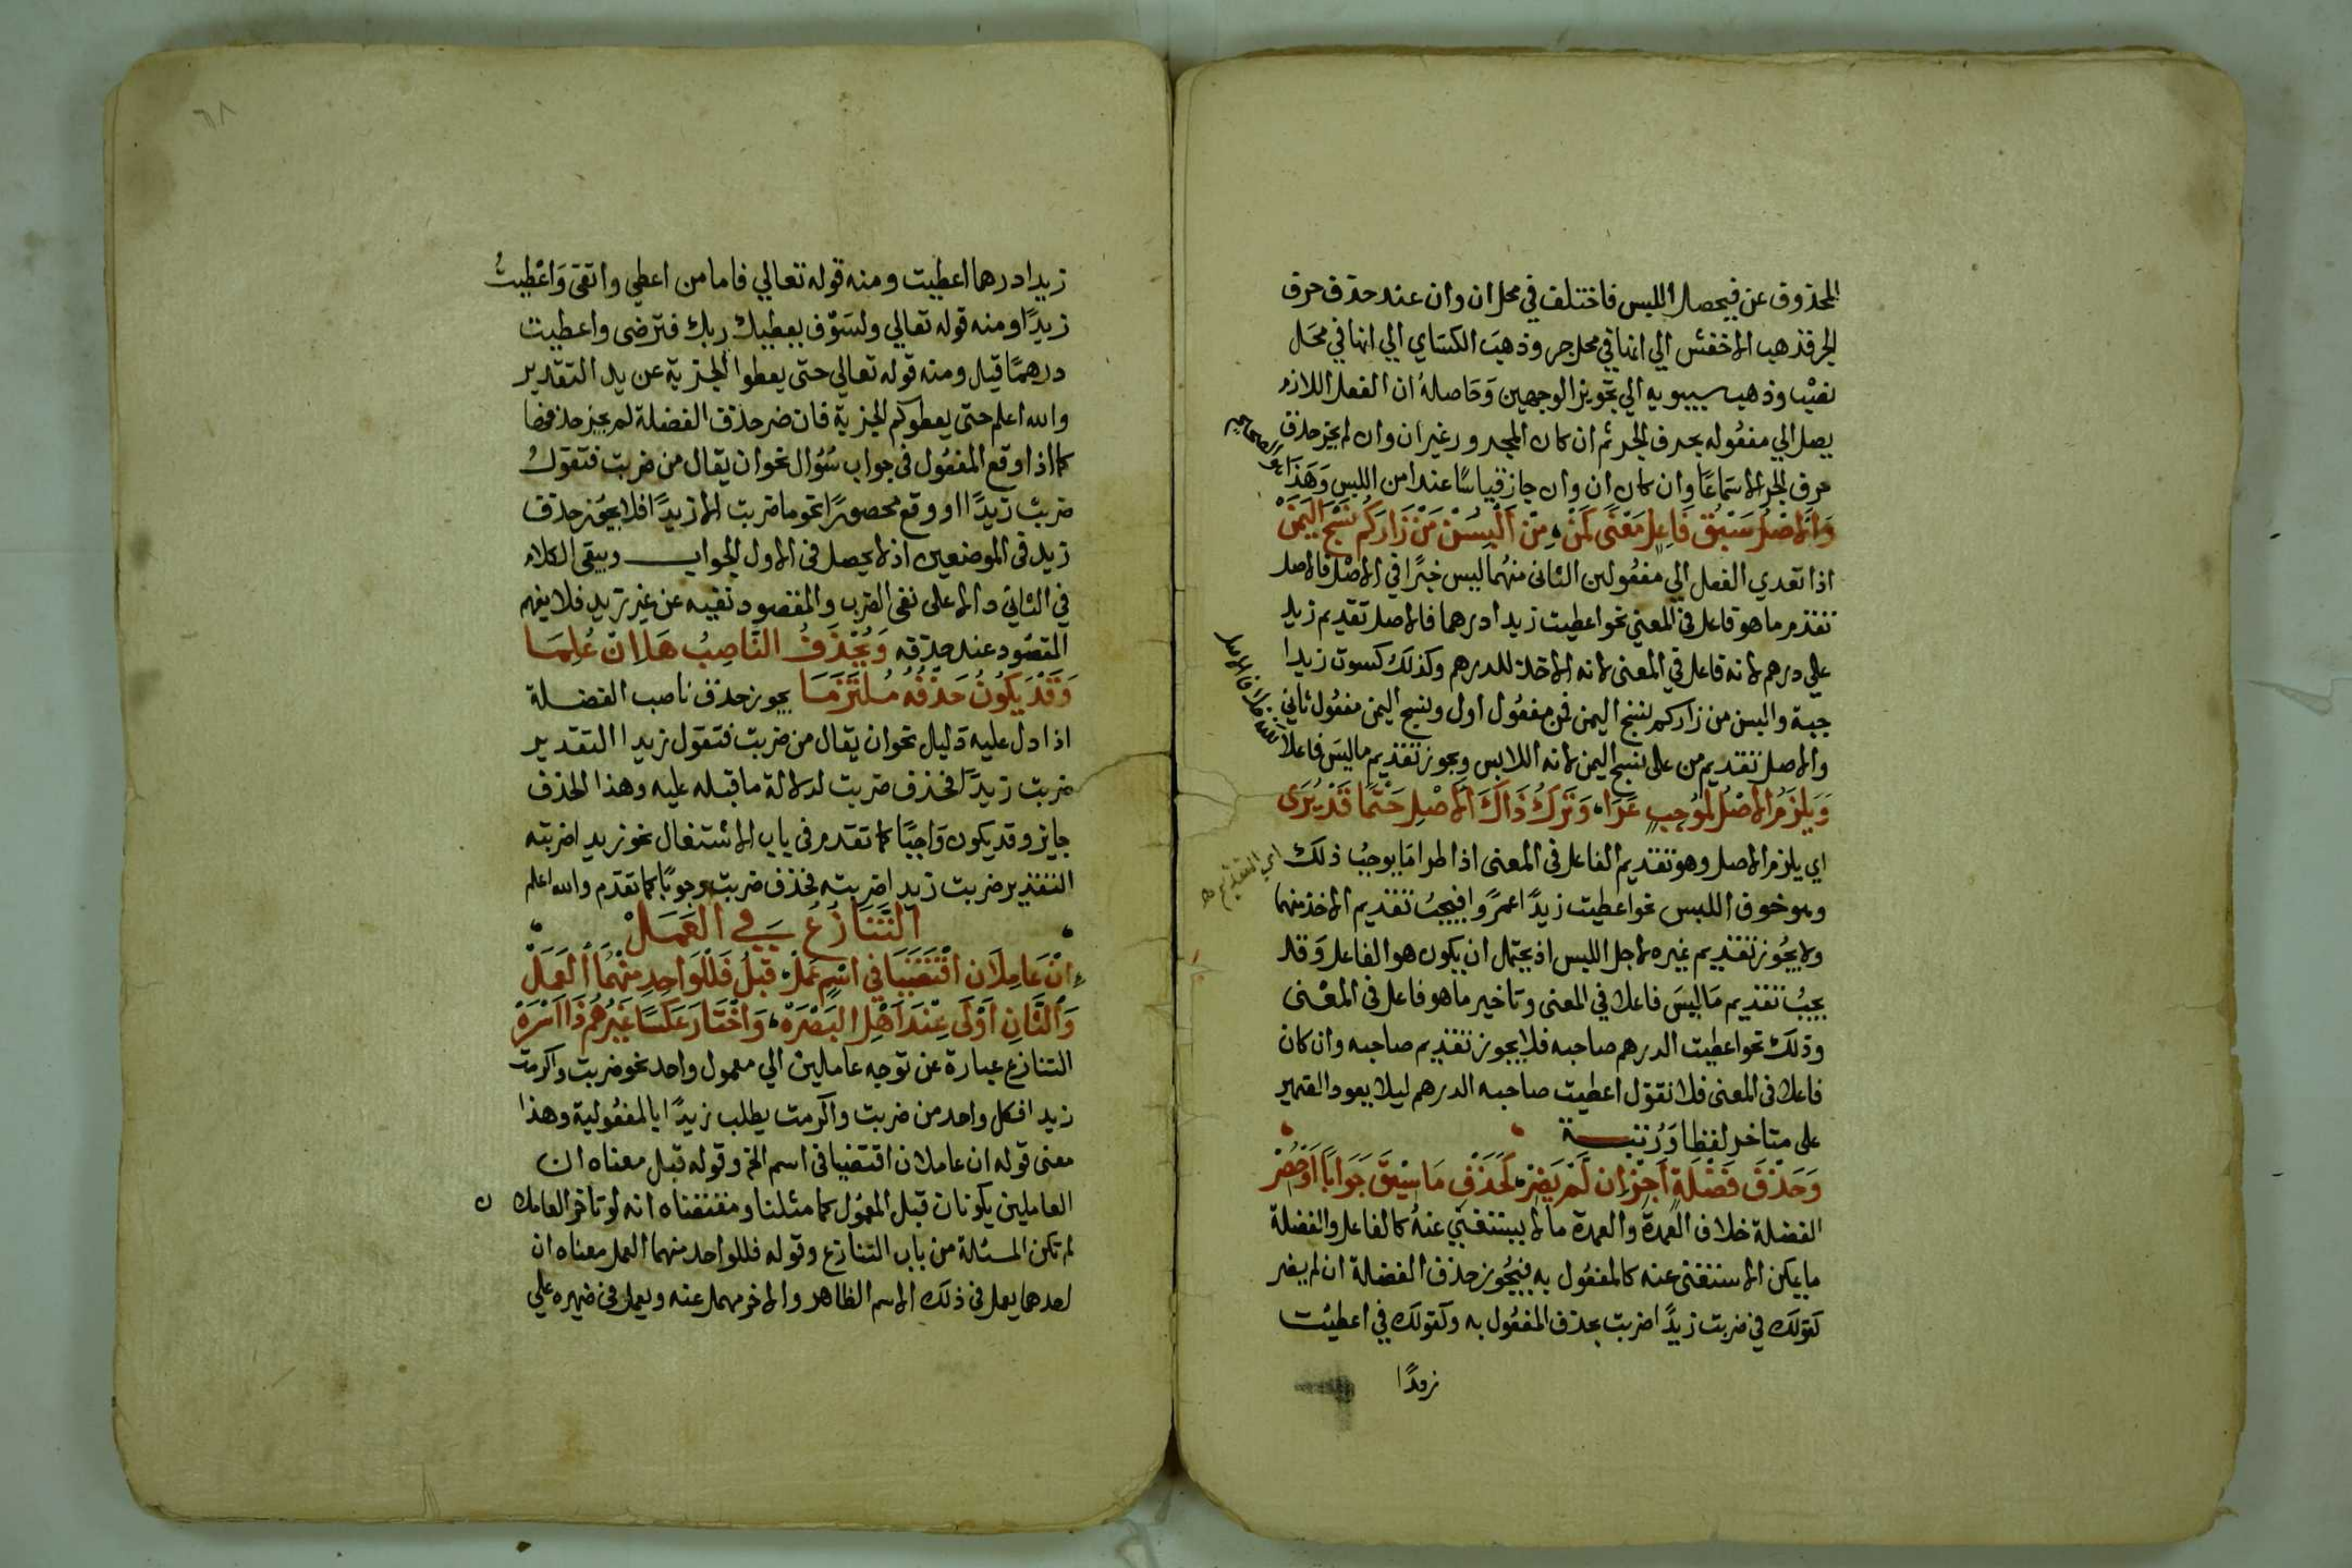 المحذوف عن فيحصل اللبس فاختلف في محل ان وان عند حذف حرف
الجر فذهب الاخفش الي انها في محل جر وذهب الكساي الي انها في محل
نصب وذهب سيبويه الي تجويز الوجهين وحاصله ان الفعل اللازم
يصل الي مفعوله بحرف الجر ثم ان كان المجرور غير ان وان لم يجز حذف
حرف الجر الا سماعا وان كان ان وان جاز قياسا عند امن اللبس وهذا
هو الصحيح
وَالاَصْلُ سَبْقُ فَاعِلٍ مَعْنًى كَمَنْ مِنْ اَلْبِسَنْ مَنْ زَارَكُمْ نَسْجَ الْيَمَنْ
اذا تعدي الفعل الي مفعولين الثاني منهما ليس خبرًا في الاصل فالاصل
تقديم ما هو فاعل في المعني نحو اعطيت زيدا درهما فالاصل تقديم زيد
علي درهم لانه فاعل في المعنى لانه الاخذ للدرهم وكذلك كسوت زيدا
جبة والبسن من زاركم نسج اليمن فمن مفعول اول ونسج اليمن مفعول ثاني
والاصل تقديم من على نسج اليمن لانه اللابس ويجوز تقديم ما ليس فاعلا
وَيَلْزَمُ الاَصْلُ لمُوجِبٍ عَرَا وَتَرْكُ ذَاكَ الاَصْلِ حَتْمًا قَدْ يُرَى
اي يلزم الاصل وهو تقديم الفاعل في المعنى اذا طرا مَا يوجبُ ذلك
اي التقديم
وهو خوف اللبس نحو اعطيت زيدًا عمرًوا فيجبُ تقديم الاخذ منهما
ولا يجُوز تقديم غيره لاجل اللبس اذ يحتمل ان يكون هو الفاعل وَقد
يجبُ تقديم مَا ليسَ فاعلا في المعنى وتاخير ما هو فاعل في المعْنى
وذلك نحو اعطيت الدرهم صاحبه فلا يجوز تقديم صاحبه وان كان
فاعلا في المعنى فلا تقول اعطيت صاحبه الدرهم ليلا يعود الضمير
على متاخر لفظا وَرُتبــة
وَحَذْفَ فَضْلَةٍ اَجِزْ اِن لَمْ يَضِرْ كَحَذْفِ مَا سِيْقَ جَوَابًا اَوْ حُصِرْ
الفضلة خلاف العمدة والعمدة ما لا يستغني عنهُ كالفاعل والفضلة
ما يمكن الاستغنى عنه كالمفعُول به فيجُوز حذف الفضلة ان لم يضر
كقولك في ضربت زيدًا ضربت بحذف المفعُول به وكقولك في اعطيت
زيدًا
٦٨
زيدا درهما اعطيت ومنه قوله تعالي فاما من اعطي واتقى وَاعْطيتُ
زيدًا ومنه قوله تعالي ولسَوْف يعطيك ربك فترضى واعطيت
درهمًا قيل ومنه قوله تعالي حتى يعطوا الجزية عن يد التقدير
والله اعلم حتى يعطوكم الجزية فان ضر حذف الفضلة لم يجز حذفها
كما اذا وقع المفعُول في جواب سُؤال نحو ان يقال من ضربت فتقول
ضربت زيدًا او وقع محصورًا نحو ما ضربت الا زيدًا فلا يجوز حذف
زيد في الموضعين اذ لا يحصل في الاول الجواب ويبقى الكلام
في الثاني دالا على نفي الضرب والمقصود نفيه عن غير زيد فلا يفهم
المقصُود عند حذفه وَيُحْذَفُ النَّاصِبُ هَا اِنْ عُلِمَــا
وَقَدْ يَكُونُ حَذْفُهُ مُلْتَزَمَــا يجوز حذف ناصب الفضــلة
اذا دل عليه دَليل نحو ان يقال من ضربت فتقول زيدا التقدير
ضربت زيدًا فحذف ضربت لدلالة ما قبله عليه وهذا الحذف
جايز وقد يكون وَاجبًا كما تقدم في باب الاشتغال نحو زيدا ضربته
التقدير ضربت زيدا ضربته فحذف ضربت وجوبًا كما تقدّم والله اعلم
التَّنَازُعُ فِي العَمَـلْ
اِنْ عَامِلاَنِ اقْتَضَيَا فِي اسْمٍ عَمَلْ قَبْلُ فَلِلْوَاحِدِ مِنْهُمَا العَمَلْ
وَالثَّانِ اَوْلَى عِنْدَ اَهْلِ البَصْرَهْ وَاخْتَارَ عَكْسًا غَيْرُهُمْ ذَا اَسْرَهْ
التنازع عبارة عن توجه عاملين الي معمول واحد نحو ضربت واكرمت
زيدا فكل واحد من ضربت واكرمت يطلب زيدًا بالمفعُولية وهذا
معنى قوله ان عاملان اقتضيا في اسم الخ وقوله قبل معناه ان
العاملين يكونان قبل المعمُول كما مثلنا ومقتضاه انه لو تاخر العاملان
لم تكن المسئلة من باب التنازع وقوله فللواحد منهما العمل معناه ان
احدهما يعمل في ذلك الاسم الظاهر والاخر مهمل عنه ويعمل في ضميره علي